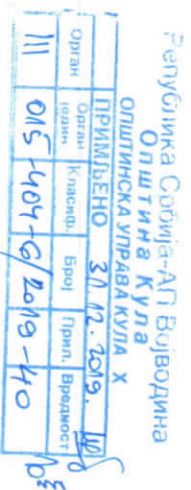 Република Србија-АП Војводина
Општина Кула
ОПШТИНСКА УПРАВА КУЛА X
ПРИМЉЕНО 30 12. 2019.
Орган Орган један Класиф. Број Прил. Вредност
III 015 -404-6/2019-40